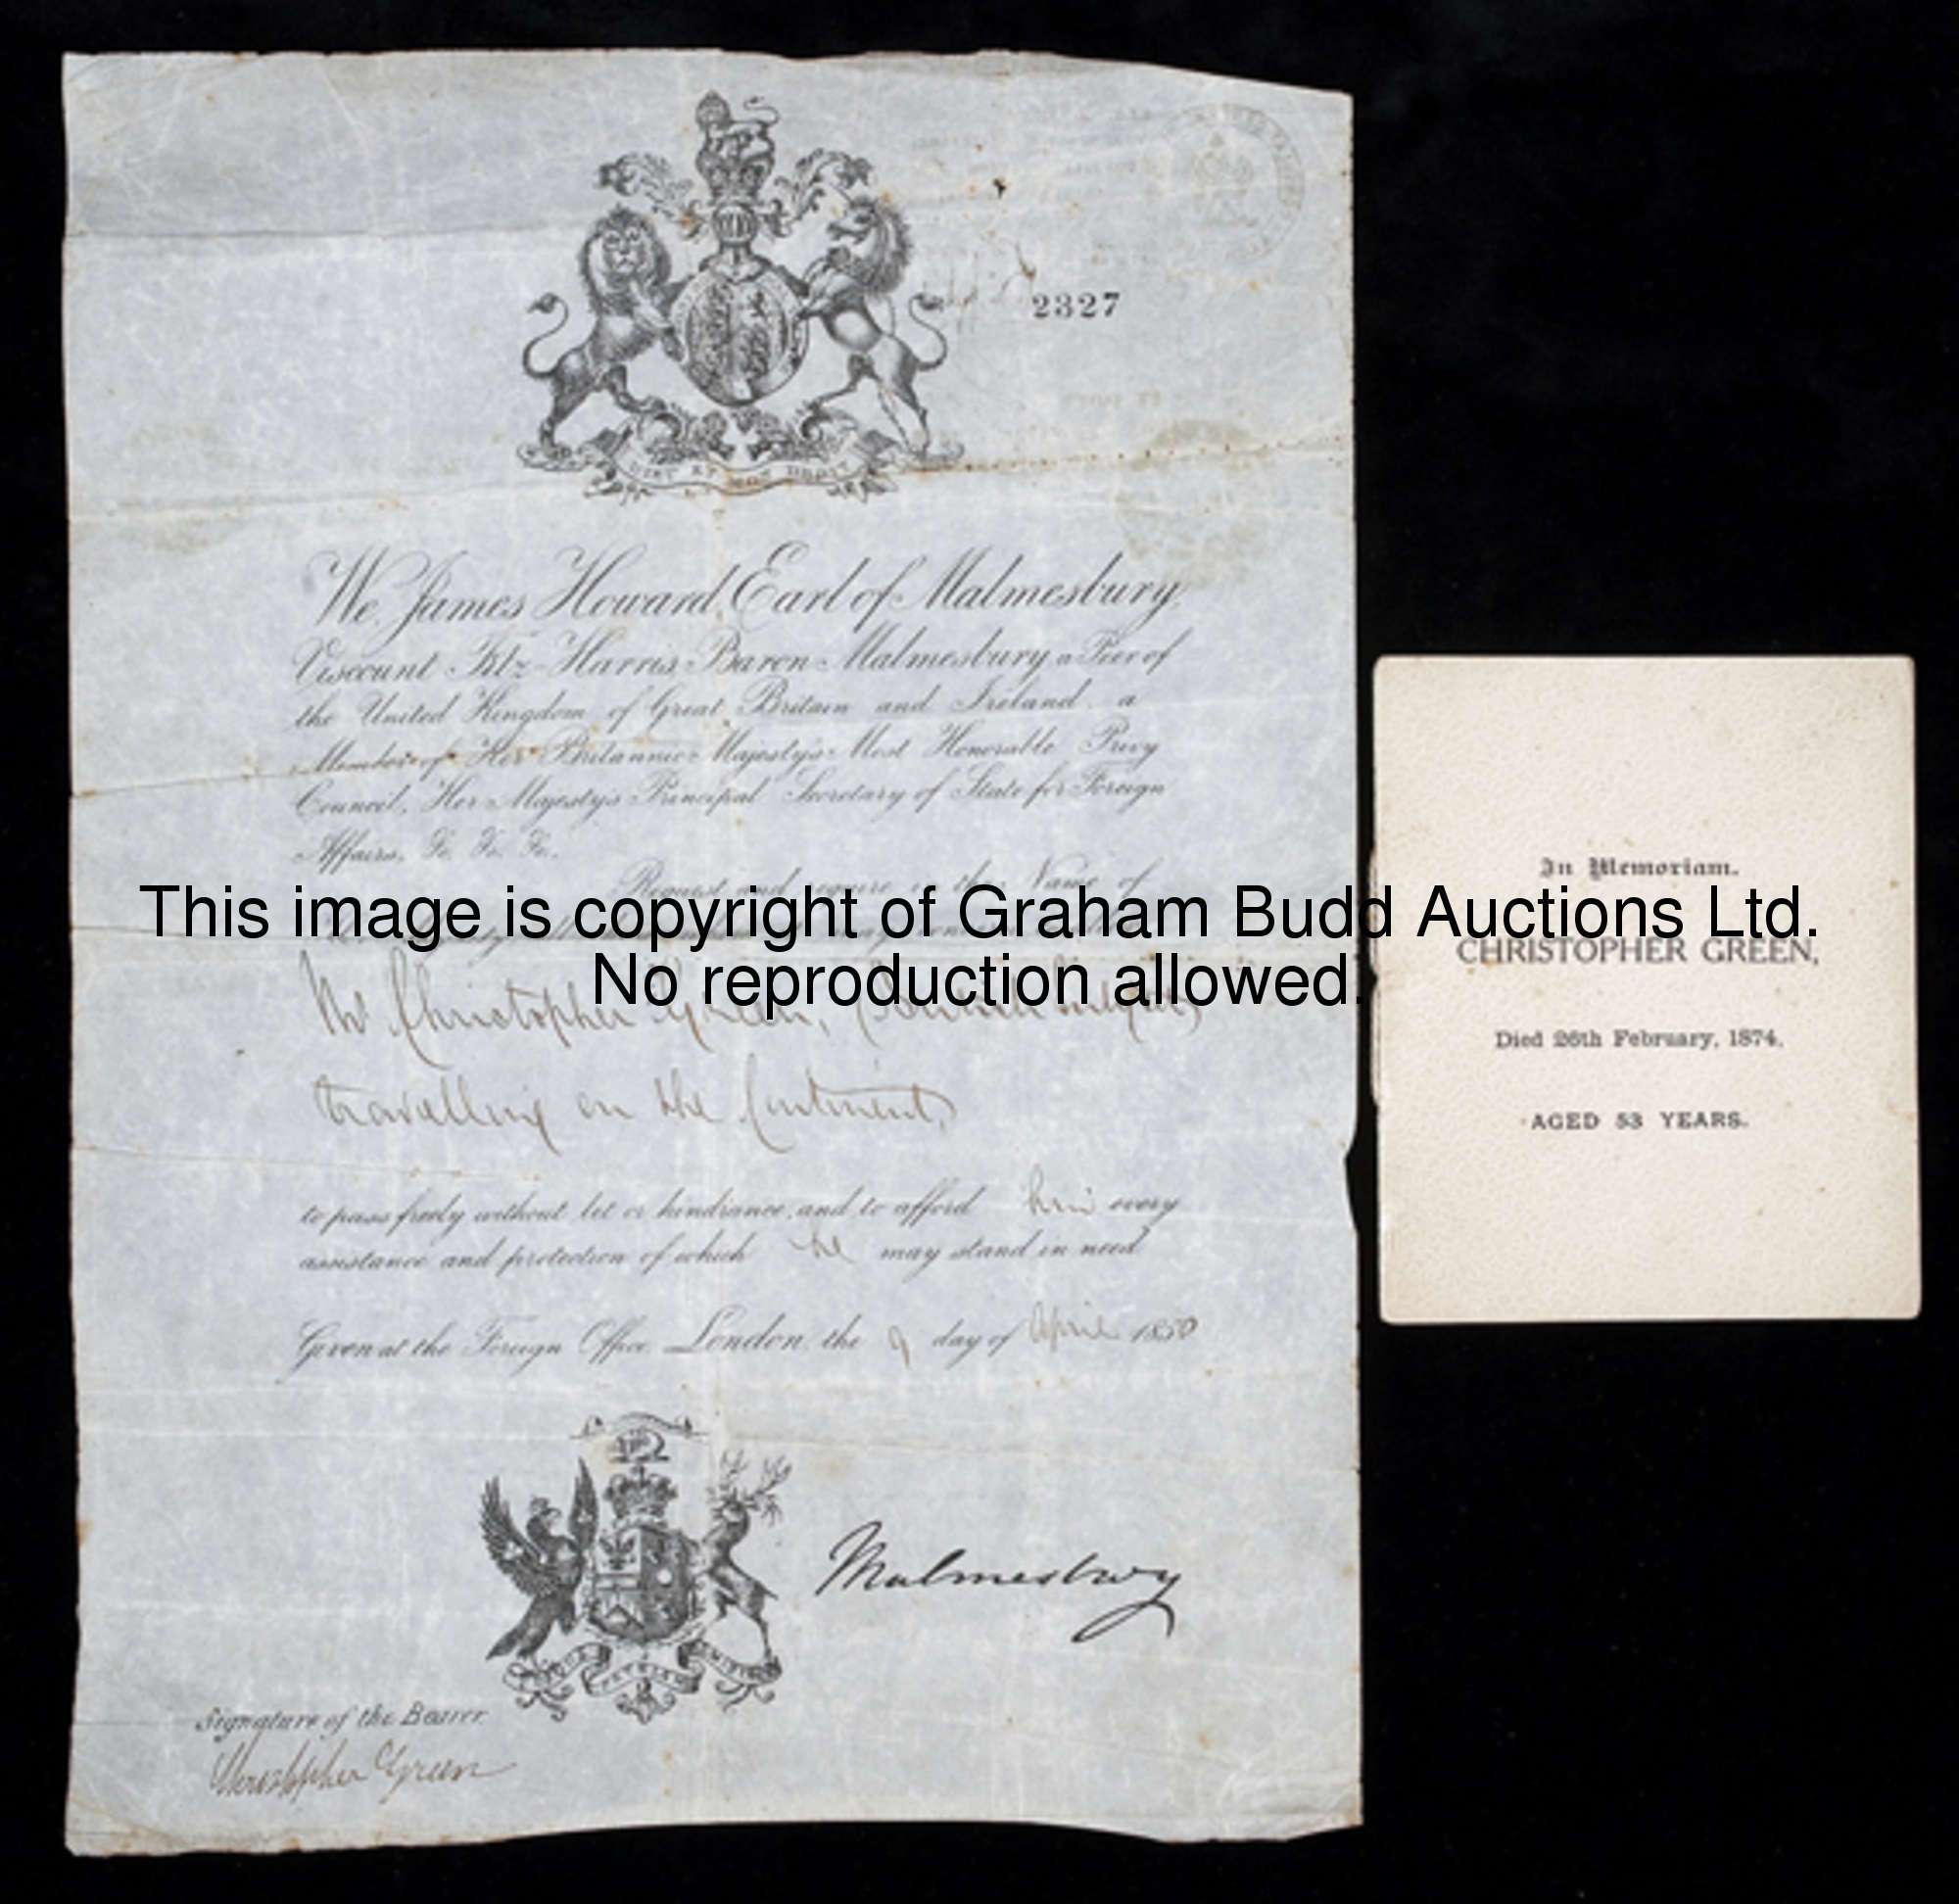 2327
DIEU ET MON DROIT
We, James Howard, Earl of Malmesbury,
Viscount Fitz-Harris, Baron Malmesbury, a Peer of
the United Kingdom of Great Britain and Ireland, a
Member of Her Britannic Majesty's Most Honorable Privy
Council, Her Majesty's Principal Secretary of State for Foreign
Affairs, &c. &c. &c.
Request and require in the Name of
Mr Christopher Green, (British subject)
travelling on the Continent,
to pass freely without let or hindrance, and to afford him every
assistance and protection of which he may stand in need.
Given at the Foreign Office, London, the 9 day of April 1850
Malmesbury
Signature of the Bearer.
Christopher Green
In Memoriam.
CHRISTOPHER GREEN,
Died 26th February, 1874,
AGED 53 YEARS.
This image is copyright of Graham Budd Auctions Ltd.
No reproduction allowed.